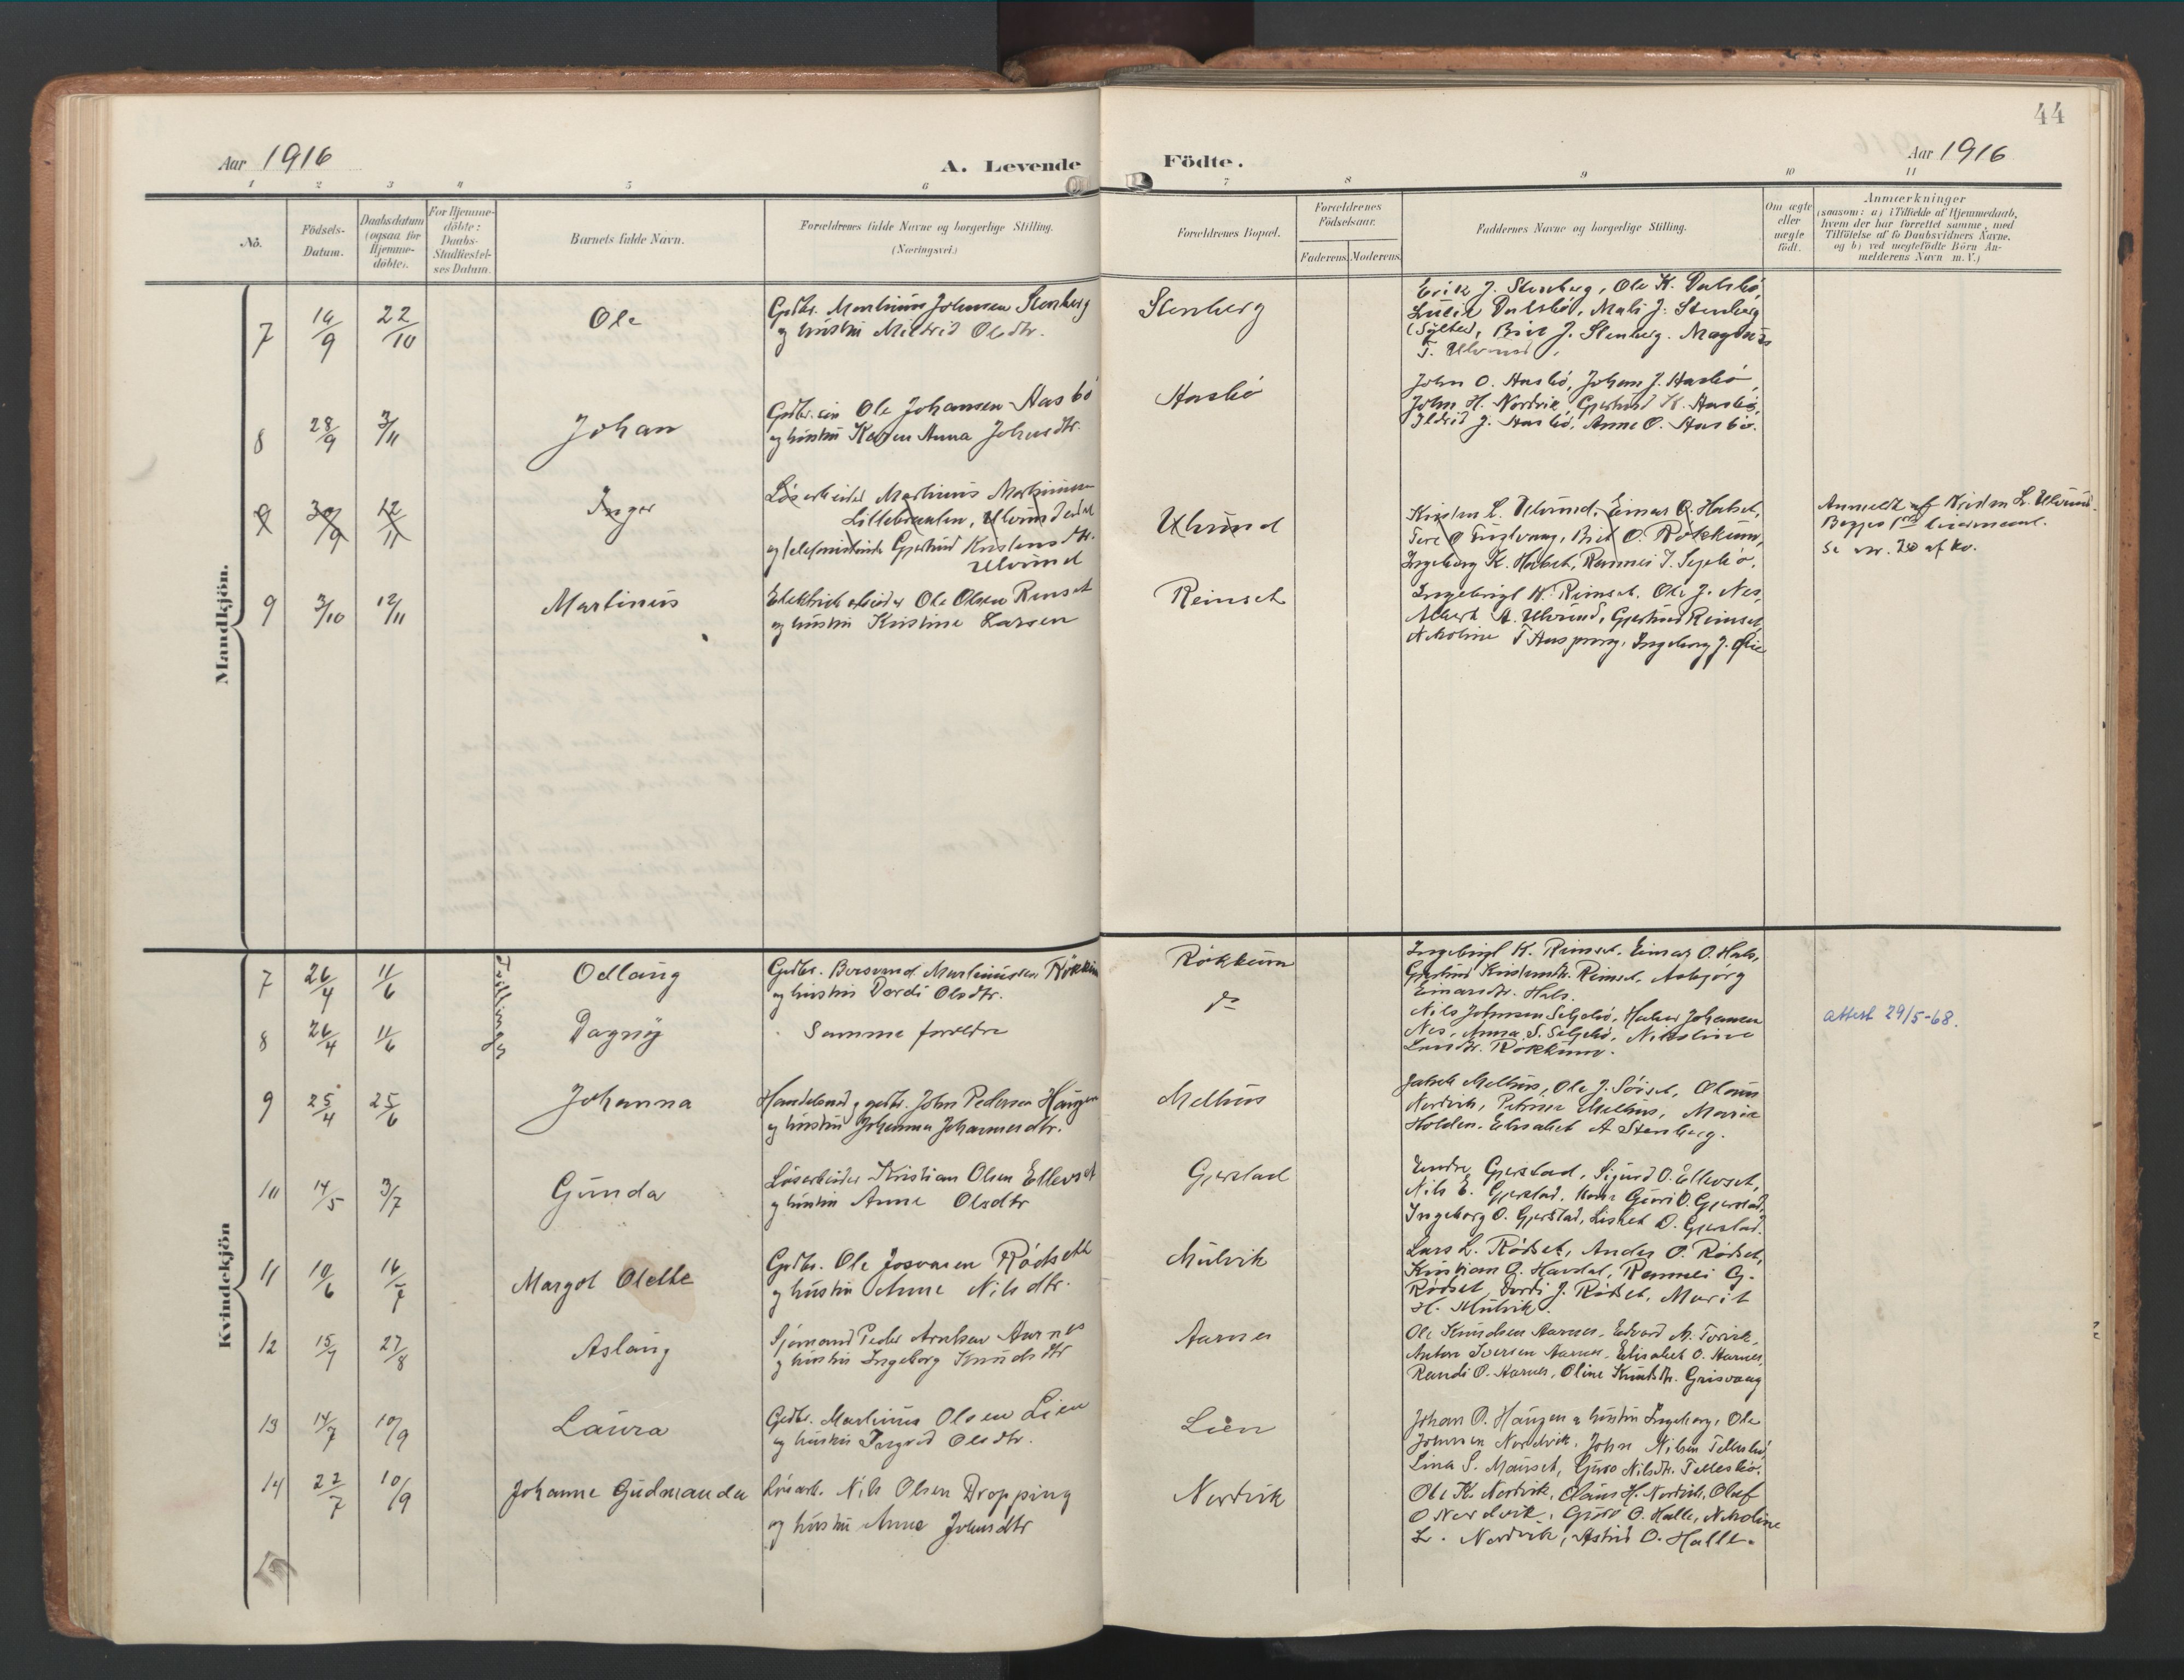 44
Aar 1916
A. Levende Födte.
Aar 1916
1 2 3 4 5 6 7 8 9 10 11
Nò.
Födsels-
Datum.
Daabsdatum
(ogsaa for
Hjemme-
döbte).
For Hjemme-
döbte:
Daabs-
Stadfæstel-
ses Datum.
Barnets fulde Navn.
Forældrenes fulde Navne og borgerlige Stilling.
(Næringsvei.)
Forældrenes Bopæl.
Forældrenes
Födselsaar.
Faderens. Moderens.
Faddernes Navne og borgerlige Stilling.
Om ægte
eller
uægte
födt.
Anmærkninger
(saasom: a) i Tilfælde af Hjemmedaab,
hvem der har forrettet samme, med
Tilföielse af to Daabsvidners Navne.
og b) ved uegtefödte Börn An-
melderens Navn m. V.)
Mandkjön.
7 14/9 22/10 Ole
Gdbr. Martinus Johansen Stenberg
og hustru Mildrid Olsdtr.
Stenberg
Erik J. Stenberg, Ole K. Dalsbö,
Dalsbö, Mali J. Stenberg
Brit J. Stenberg. Magnus
T. Ulvund
8 28/9 3/11 Johan
Ole Johansen Aasbö
og hustru Karen Anna Johnsdtr.
Aasbö
John O. Aasbö, Johan J. Aasbö,
John H. Nordvik, Gjertrud K. Aasbö,
Ildrid J. Aasbö, Anne O. Aasbö.
9 30/9 12/11 Inger
Lösarbeider Martinus Martinsen
Ulvundeidet
og telefonistinde Gjertrud Kristensdtr.
Ulvund
Ulvund
Kristen L. Ulvund, Einar O. Halset,
Brit O. Rökkum,
Ingeborg K. Halset, Rannei I.
Anmeldt af Kristen L. Ulvund.
Begges 1ste leiermaal.
Se nr. 20 af kv.
9 3/10 12/11 Martinus
Elektrisk arbeider Ole Olsen Renset
og hustru Kristine Larsen
Reinset
Ingebrigt K. Reinset, Ole J. Nes,
Albert A. Ulvund, Gjertrud Reinset
Nikoline T Aaspung, Ingeborg J.
Kvindekjön
Tvillinger
7 26/4 11/6 Odlaug
Gdbr. Bersvend Martinussen Rökkum
og hustru Dordi Olsdtr.
Rökkum
Ingebrigt K. Reinset, Einar O. Hals,
Gjertrud Kristensdtr. Reinset, Asbjörg
Einarsdtr. Hals.
8 26/4 11/6 Dagny
Samme foreldre
do
Nils Johnsen Seljebö, Johansen
Nes, Anna S. Seljebö, Nikoline
Larsdtr. Rökkum.
attest 29/5-68.
9 25/4 25/6 Johanna
Handelsmd. og gdbr. John Pedersen Haugen
og hustru Johanna Johannesdtr.
Melhus
Jakob Melhus, Ole J. Söiset, Olaus
Nordvik, Petrine Melhus, Marie
Holden, Elisabet A Stenberg.
10 14/5 3/7 Gunda
Lösarbeider Kristian Olsen Ellevset
og hustru Anne Olsdtr
Gjerstad
Endre Gjerstad, Sigurd O. Ellevset,
Nils E. Gjerstad, kone Guri O. Gjerstad,
Ingeborg O. Gjerstad, Lisbet O. Gjerstad.
11 10/6 16/7 Margot Olette
Gdbr. Ole Josvasen Rödseth
og hustru Anne Nilsdtr.
Mulvik
Lars L. Rödset, Anders O. Rödset,
Kristian G. Havdal, Rannei G.
Rödset, Dordi J. Rödset, Marit
H. Mulvik.
12 15/7 27/8 Aslaug
Sjömand Peder Arntsen Aarnes
og hustru Ingeborg Knudsdtr
Aarnes
Ole Knudsen Aarnes, Edvard M. Torvik,
Anton Iversen Aarnes, Elisabet O. Aarnes,
Randi O. Aarnes, Oline Knudsdtr. Grisvaag
13 14/7 10/9 Laura
Gdbr. Martinus Olsen Lien
og hustru Ingrid Olsdtr.
Lien
Johan O. Haugen & hustru Ingeborg, Ole
Johnsen Nordvik, John Nilsen Tellesbö,
Lina S. Mauset, Guro Nilsdtr. Tellesbö.
14 22/7 10/9 Johanne Gudmanda
Lösarb. Nils Olsen Dropping
og hustru Anne Johnsdtr
Nordvik
Ole K. Nordvik, Claus H. Nordvik, Olaf
O Nordvik, Guro O. Halle, Nikoline
L. Nordvik, Astrid O. Halle.
15